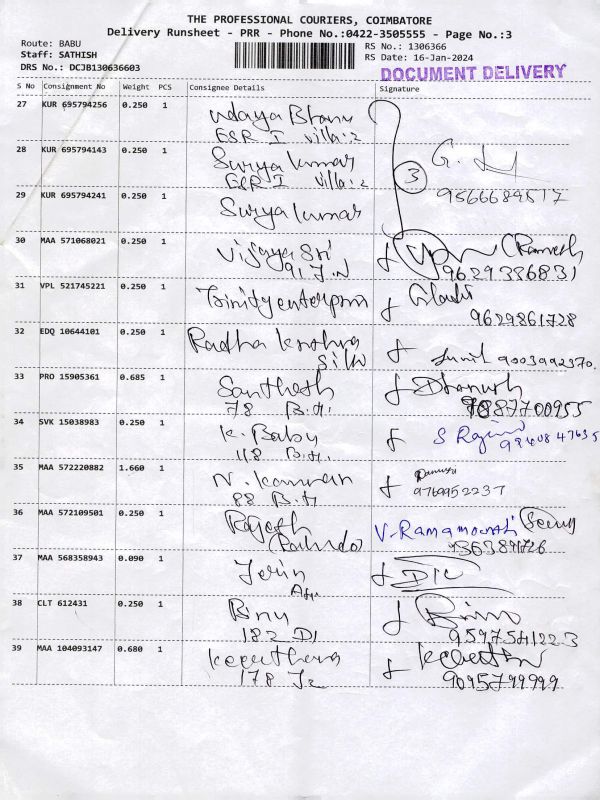 THE PROFESSIONAL COURIERS, COIMBATORE
Delivery Runsheet - PRR - Phone No.:0422-3505555 - Page No.:3
Route: BABU
Staff: SATHISH
DRS No.: DCJB130636603
RS No.: 1306366
RS Date: 16-Jan-2024
DOCUMENT DELIVERY
S No Consignment No Weight PCS Consignee Details Signature
27 KUR 695794256 0.250 1 Udaya Bhanu
GSR I Villa:2
28 KUR 695794143 0.250 1 Surya Kumar
GSR I Villa:2
3
9566684517
29 KUR 695794241 0.250 1 Surya Kumar
30 MAA 571068021 0.250 1 Vijaya Sri (Ramesh
91 J.N 9629336831
31 VPL 521745221 0.250 1 Trinity enterprises
9629861728
32 EDQ 10644101 0.250 1 Radha Krishna
Silk Sunil 9003992370.
33 PRO 15905361 0.685 1 Santhosh Dhanush
78 B.H. 9887700955
34 SVK 15038983 0.250 1 K. Babu
118 B.H. 9940847635
35 MAA 572220882 1.660 1 N. Kannan
88 B.H 9769952237
36 MAA 572109501 0.250 1 Rajesh V. Ramamoorthi
37 MAA 568358943 0.090 1 Jerin
38 CLT 612431 0.250 1 Binu
182 D1 9597541223
39 MAA 104093147 0.680 1 Keerthana
178 J2 9095799999